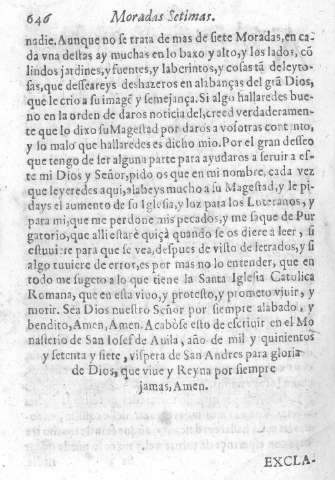 646 Moradas Setimas.
nadie. Aunque no se trata de mas de siete Moradas, en ca
da vna destas ay muchas en lo baxo y alto, y los lados, cõ
lindos jardines, y fuentes, y laberintos, y cosas tã deleyto-
sas, que desseareys deshazeros en alabanças del grã Dios,
que le crio a su imagẽ y semejança. Si algo hallaredes bue-
no en la orden de daros noticia del, creed verdaderamen-
te que lo dixo su Magestad por daros a vosotras contento,
y lo malo que hallaredes es dicho mio. Por el gran desseo
que tengo de ser alguna parte para ayudaros a seruir a es-
te mi Dios y Señor, pido os que en mi nombre, cada vez
que leyeredes aqui, alabeys mucho a su Magestad, y le pi-
days el aumento de su Iglesia, y luz para los Luteranos, y
para mi, que me perdone mis pecados, y me saque de Pur
gatorio, que alli estarè quiçà quando se os diere a leer, si
estuuiere para que se vea, despues de visto de letrados, y si
algo tuuiere de error, es por mas no lo entender, que en
todo me sugeto a lo que tiene la Santa Iglesia Catolica
Romana, que en esta viuo, y protesto, y prometo viuir, y
morir. Sea Dios nuestro Señor por siempre alabado, y
bendito, Amen, Amen. Acabòse esto de escriuir en el Mo
nasterio de San Iosef de Auila, año de mil y quinientos
y setenta y siete, vispera de San Andres para gloria
de Dios, que viue y Reyna por siempre
jamas, Amen.
EXCLA-